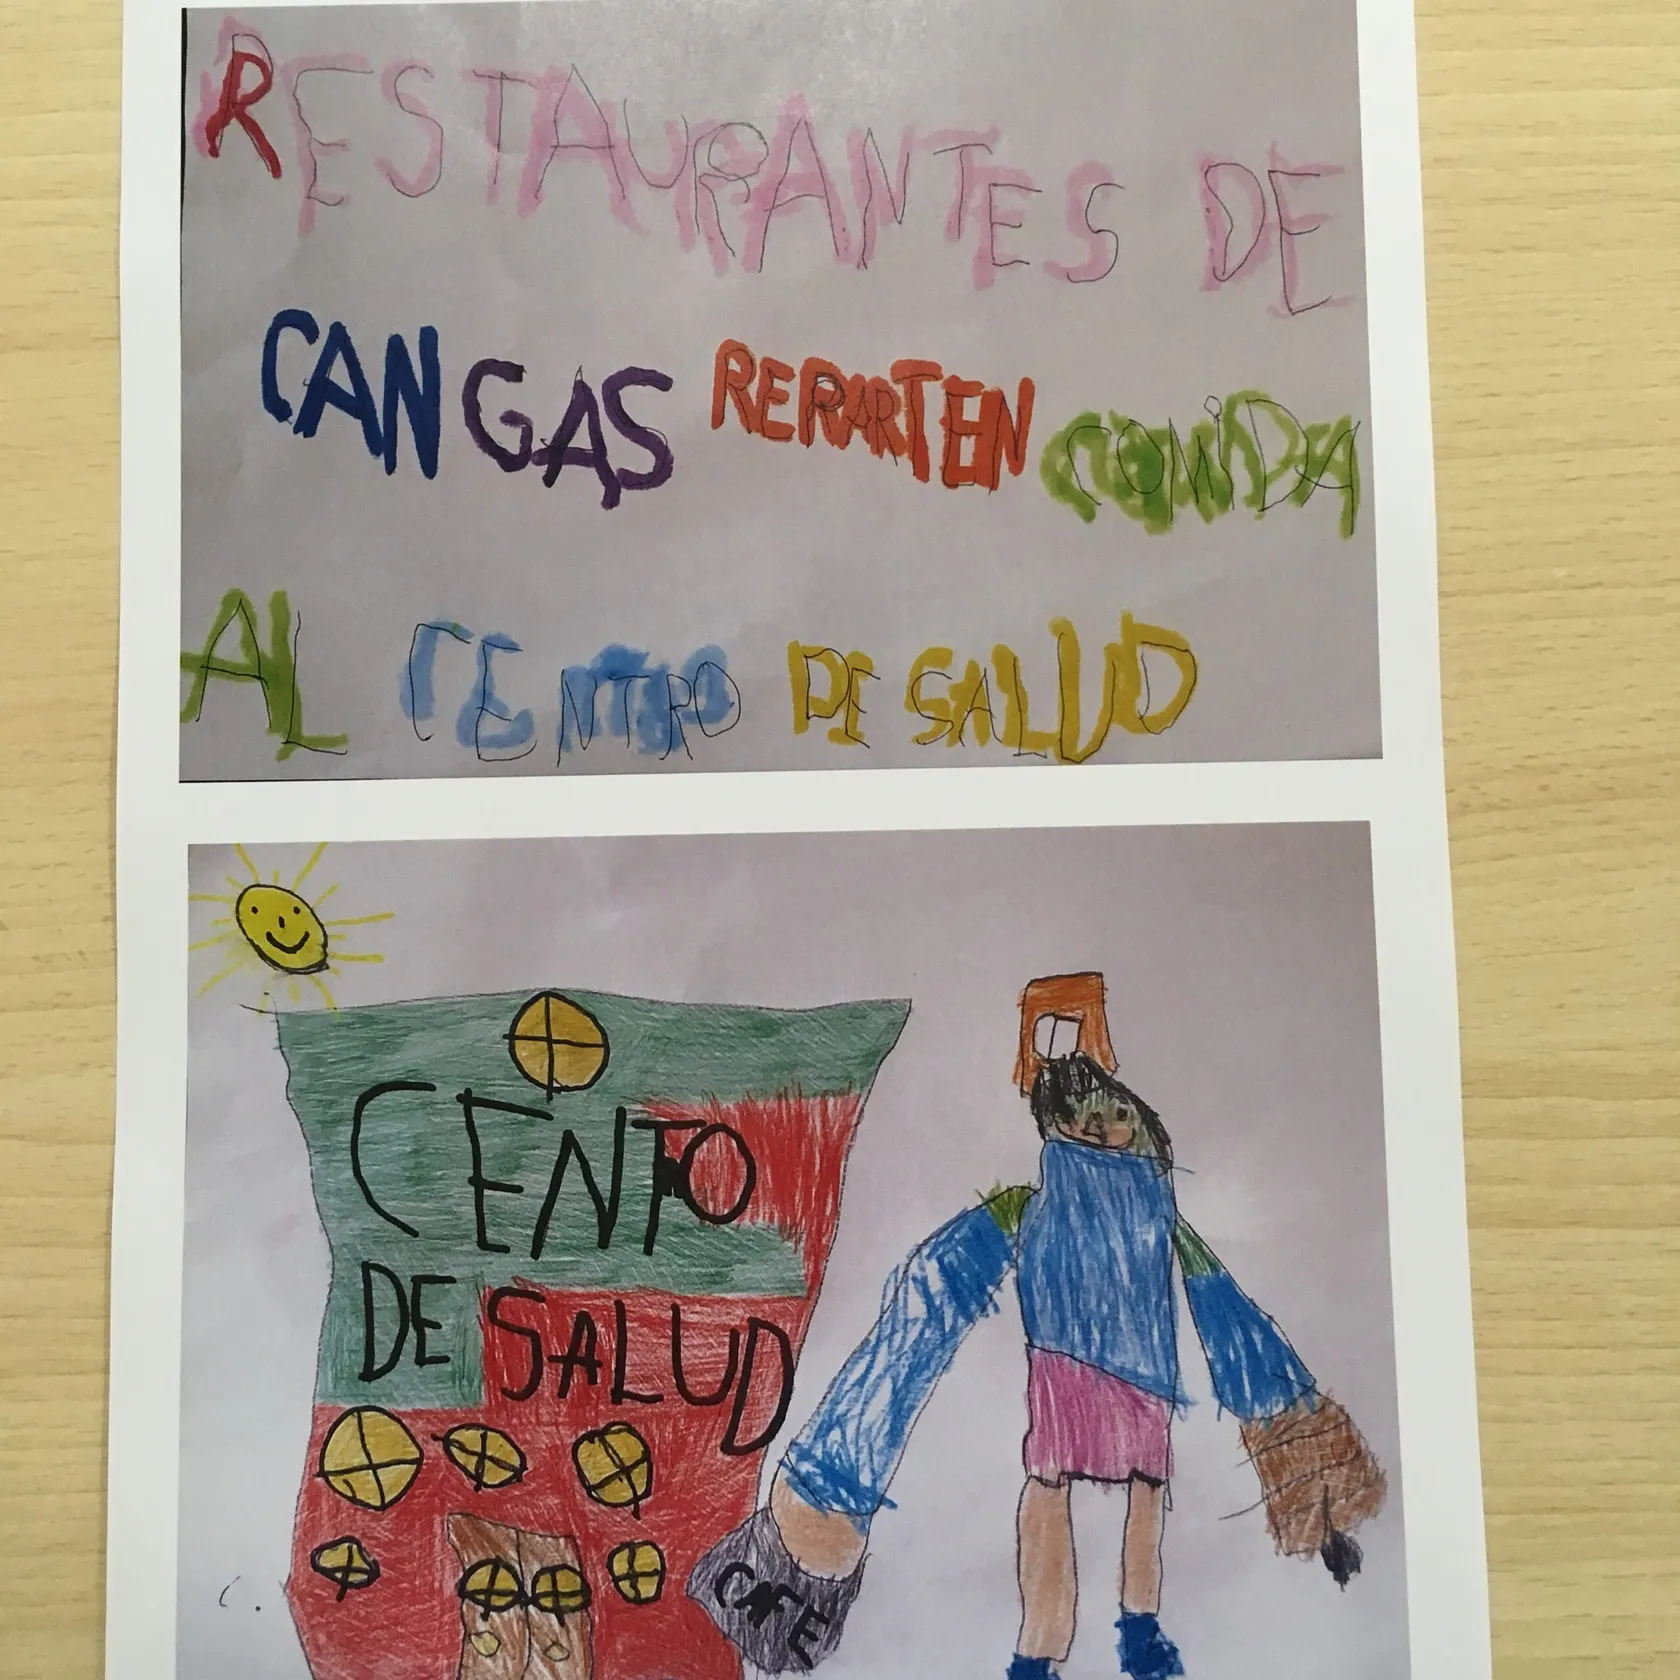 RESTAURANTES DE
CANGAS REPARTEN COMIDA
AL CENTRO DE SALUD
CENTO
DE SALUD
CAFE